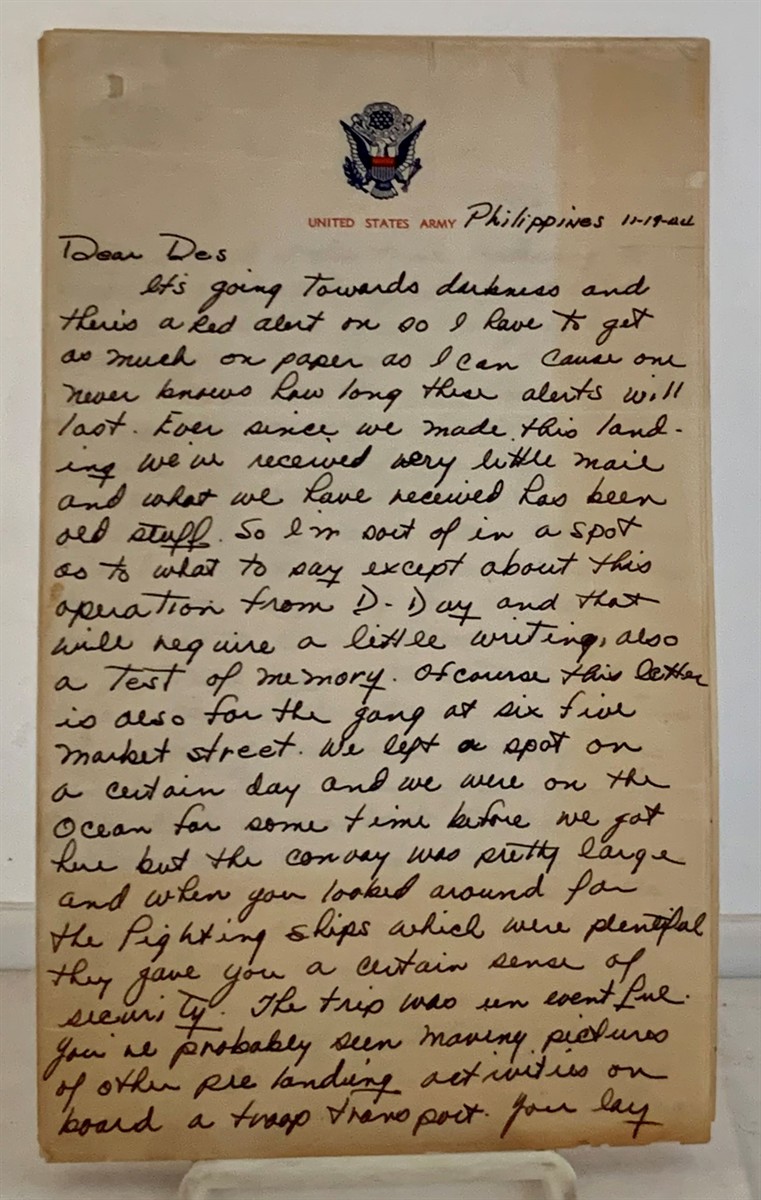 UNITED STATES ARMY Philippines 11-19-44
Dear Des
It's going towards darkness and
there's a Red alert on so I have to get
as much on paper as I can cause one
never knows how long these alerts will
last. Ever since we made this land-
ing we've received very little mail
and what we have received has been
old stuff. So I'm sort of in a spot
as to what to say except about this
operation from D-Day and that
will require a little writing, also
a test of memory. Of course this letter
is also for the gang at six five
Market street. We left a spot on
a certain day and we were on the
Ocean for some time before we got
here but the convoy was pretty large
and when you looked around for
the fighting ships which were plentiful
they gave you a certain sense of
security. The trip was un eventful.
You've probably seen moving pictures
of other pre landing activities on
board a troop transport. You lay